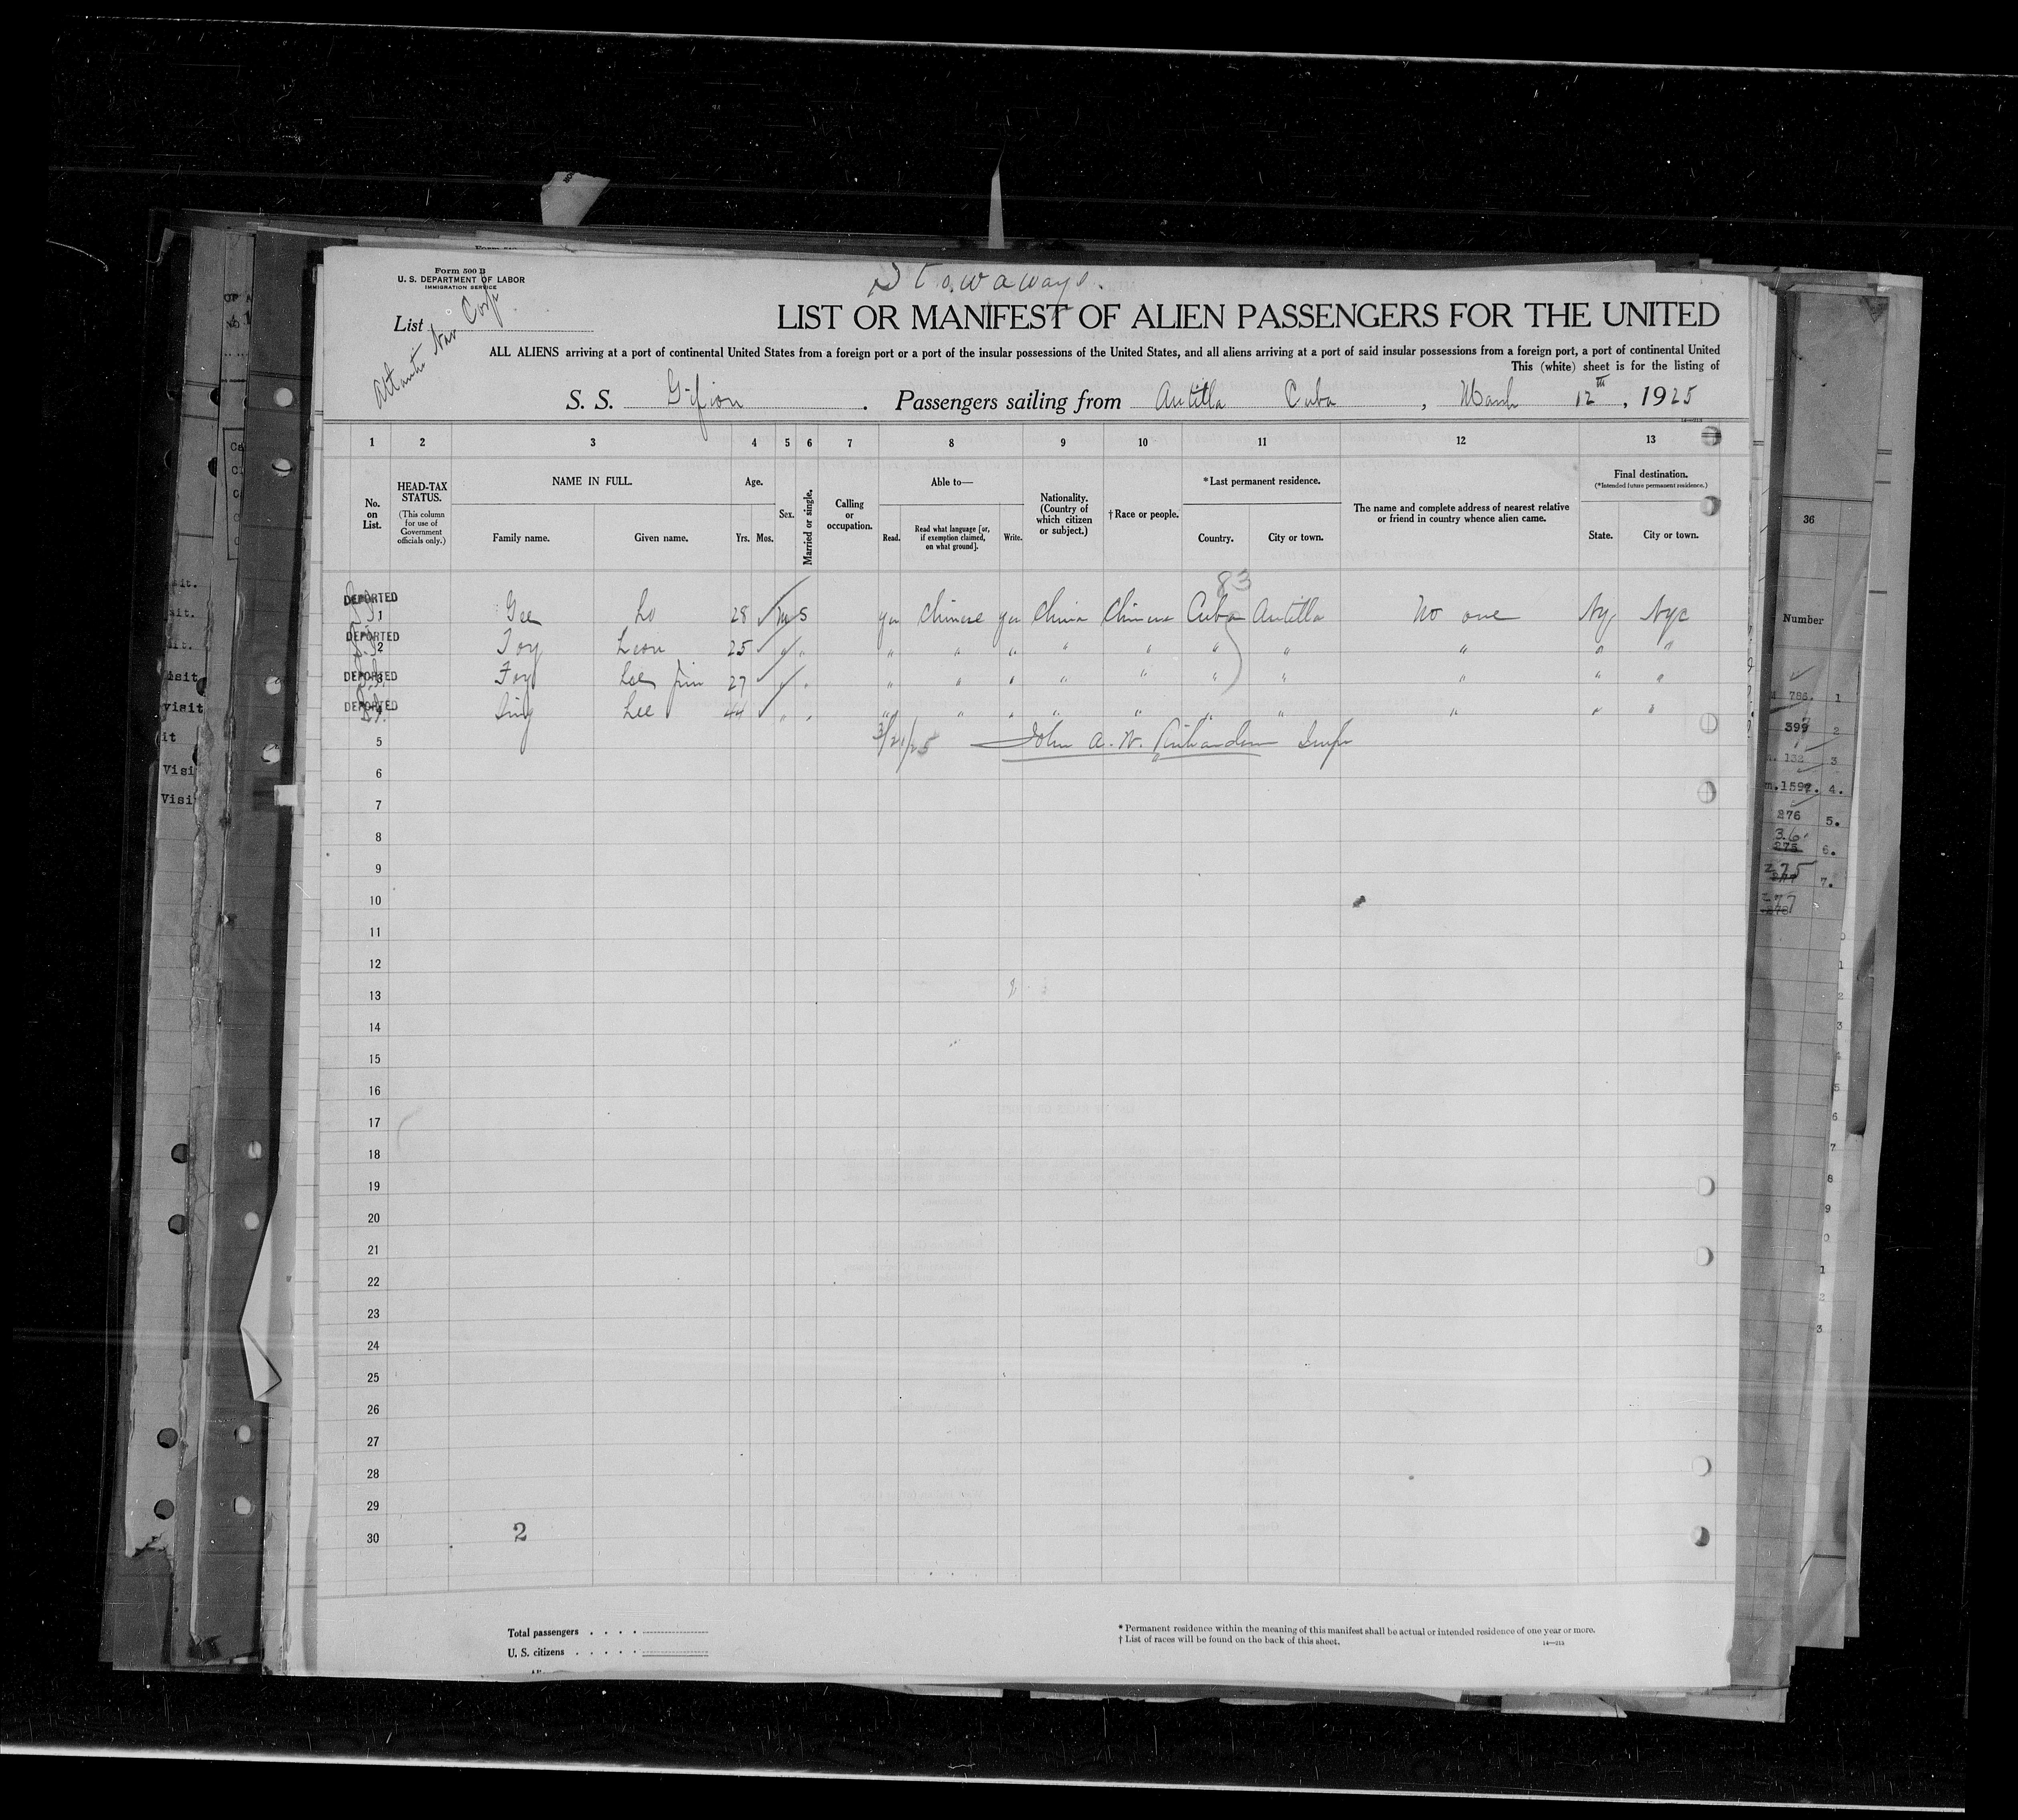 Form 500 B
U. S. DEPARTMENT OF LABOR
IMMIGRATION SERVICE
Stowaways.
List
Atlantic Nav Corp
LIST OR MANIFEST OF ALIEN PASSENGERS FOR THE UNITED
ALL ALIENS arriving at a port of continental United States from a foreign port or a port of the insular possessions of the United States, and all aliens arriving at a port of said insular possessions from a foreign port, a port of continental United
This (white) sheet is for the listing of
S. S. Gifion . Passengers sailing from Antilla Cuba , March 12th, 1925
1 2 3 4 5 6 7 8 9 10 11 12 13
No. on List.
HEAD-TAX STATUS.
(This column for use of Government officials only.)
NAME IN FULL.
Family name.
Given name.
Age.
Yrs. Mos.
Sex.
Married or single.
Calling or occupation.
Able to—
Read.
Read what language [or, if exemption claimed, on what ground].
Write.
Nationality. (Country of which citizen or subject.)
†Race or people.
*Last permanent residence.
Country.
City or town.
The name and complete address of nearest relative or friend in country whence alien came.
Final destination.
(*Intended future permanent residence.)
State.
City or town.
83
DEPORTED 1 Gee Lo 28 M S yes Chinese yes China Chinese Cuba Antilla No one Ny Nyc
DEPORTED 2 Toy Leon 25 " " " " " " " " " " " "
DEPORTED 3 Foy Lee Jim 27 " " " " " " " " " " " "
DEPORTED 4 Sing Lee 44 " " " " " " " " " " " "
5 3/21/25 John A. W. Richardson Insp
6
7
8
9
10
11
12
13
14
15
16
17
18
19
20
21
22
23
24
25
26
27
28
29
30 2
Total passengers . . . .
U. S. citizens . . . . .
* Permanent residence within the meaning of this manifest shall be actual or intended residence of one year or more.
† List of races will be found on the back of this sheet.
14—214
36
Number
786. 1
399 2
132 3
m.1597. 4.
276 5.
36
275 6.
275
7.
277
visit
it
Visi
Visi